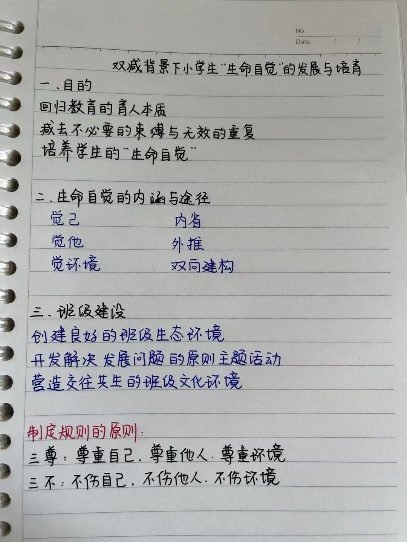 No.
Date / /
双减背景下小学生"生命自觉"的发展与培育
一、目的
回归教育的育人本质
减去不必要的束缚与无效的重复
培养学生的"生命自觉"
二、生命自觉的内涵与途径
觉己 内省
觉他 外推
觉环境 双向建构
三、班级建设
创建良好的班级生态环境
开发解决发展问题的原则主题活动
营造交往共生的班级文化环境
制定规则的原则:
三尊:尊重自己、尊重他人、尊重环境
三不:不伤自己、不伤他人、不伤环境